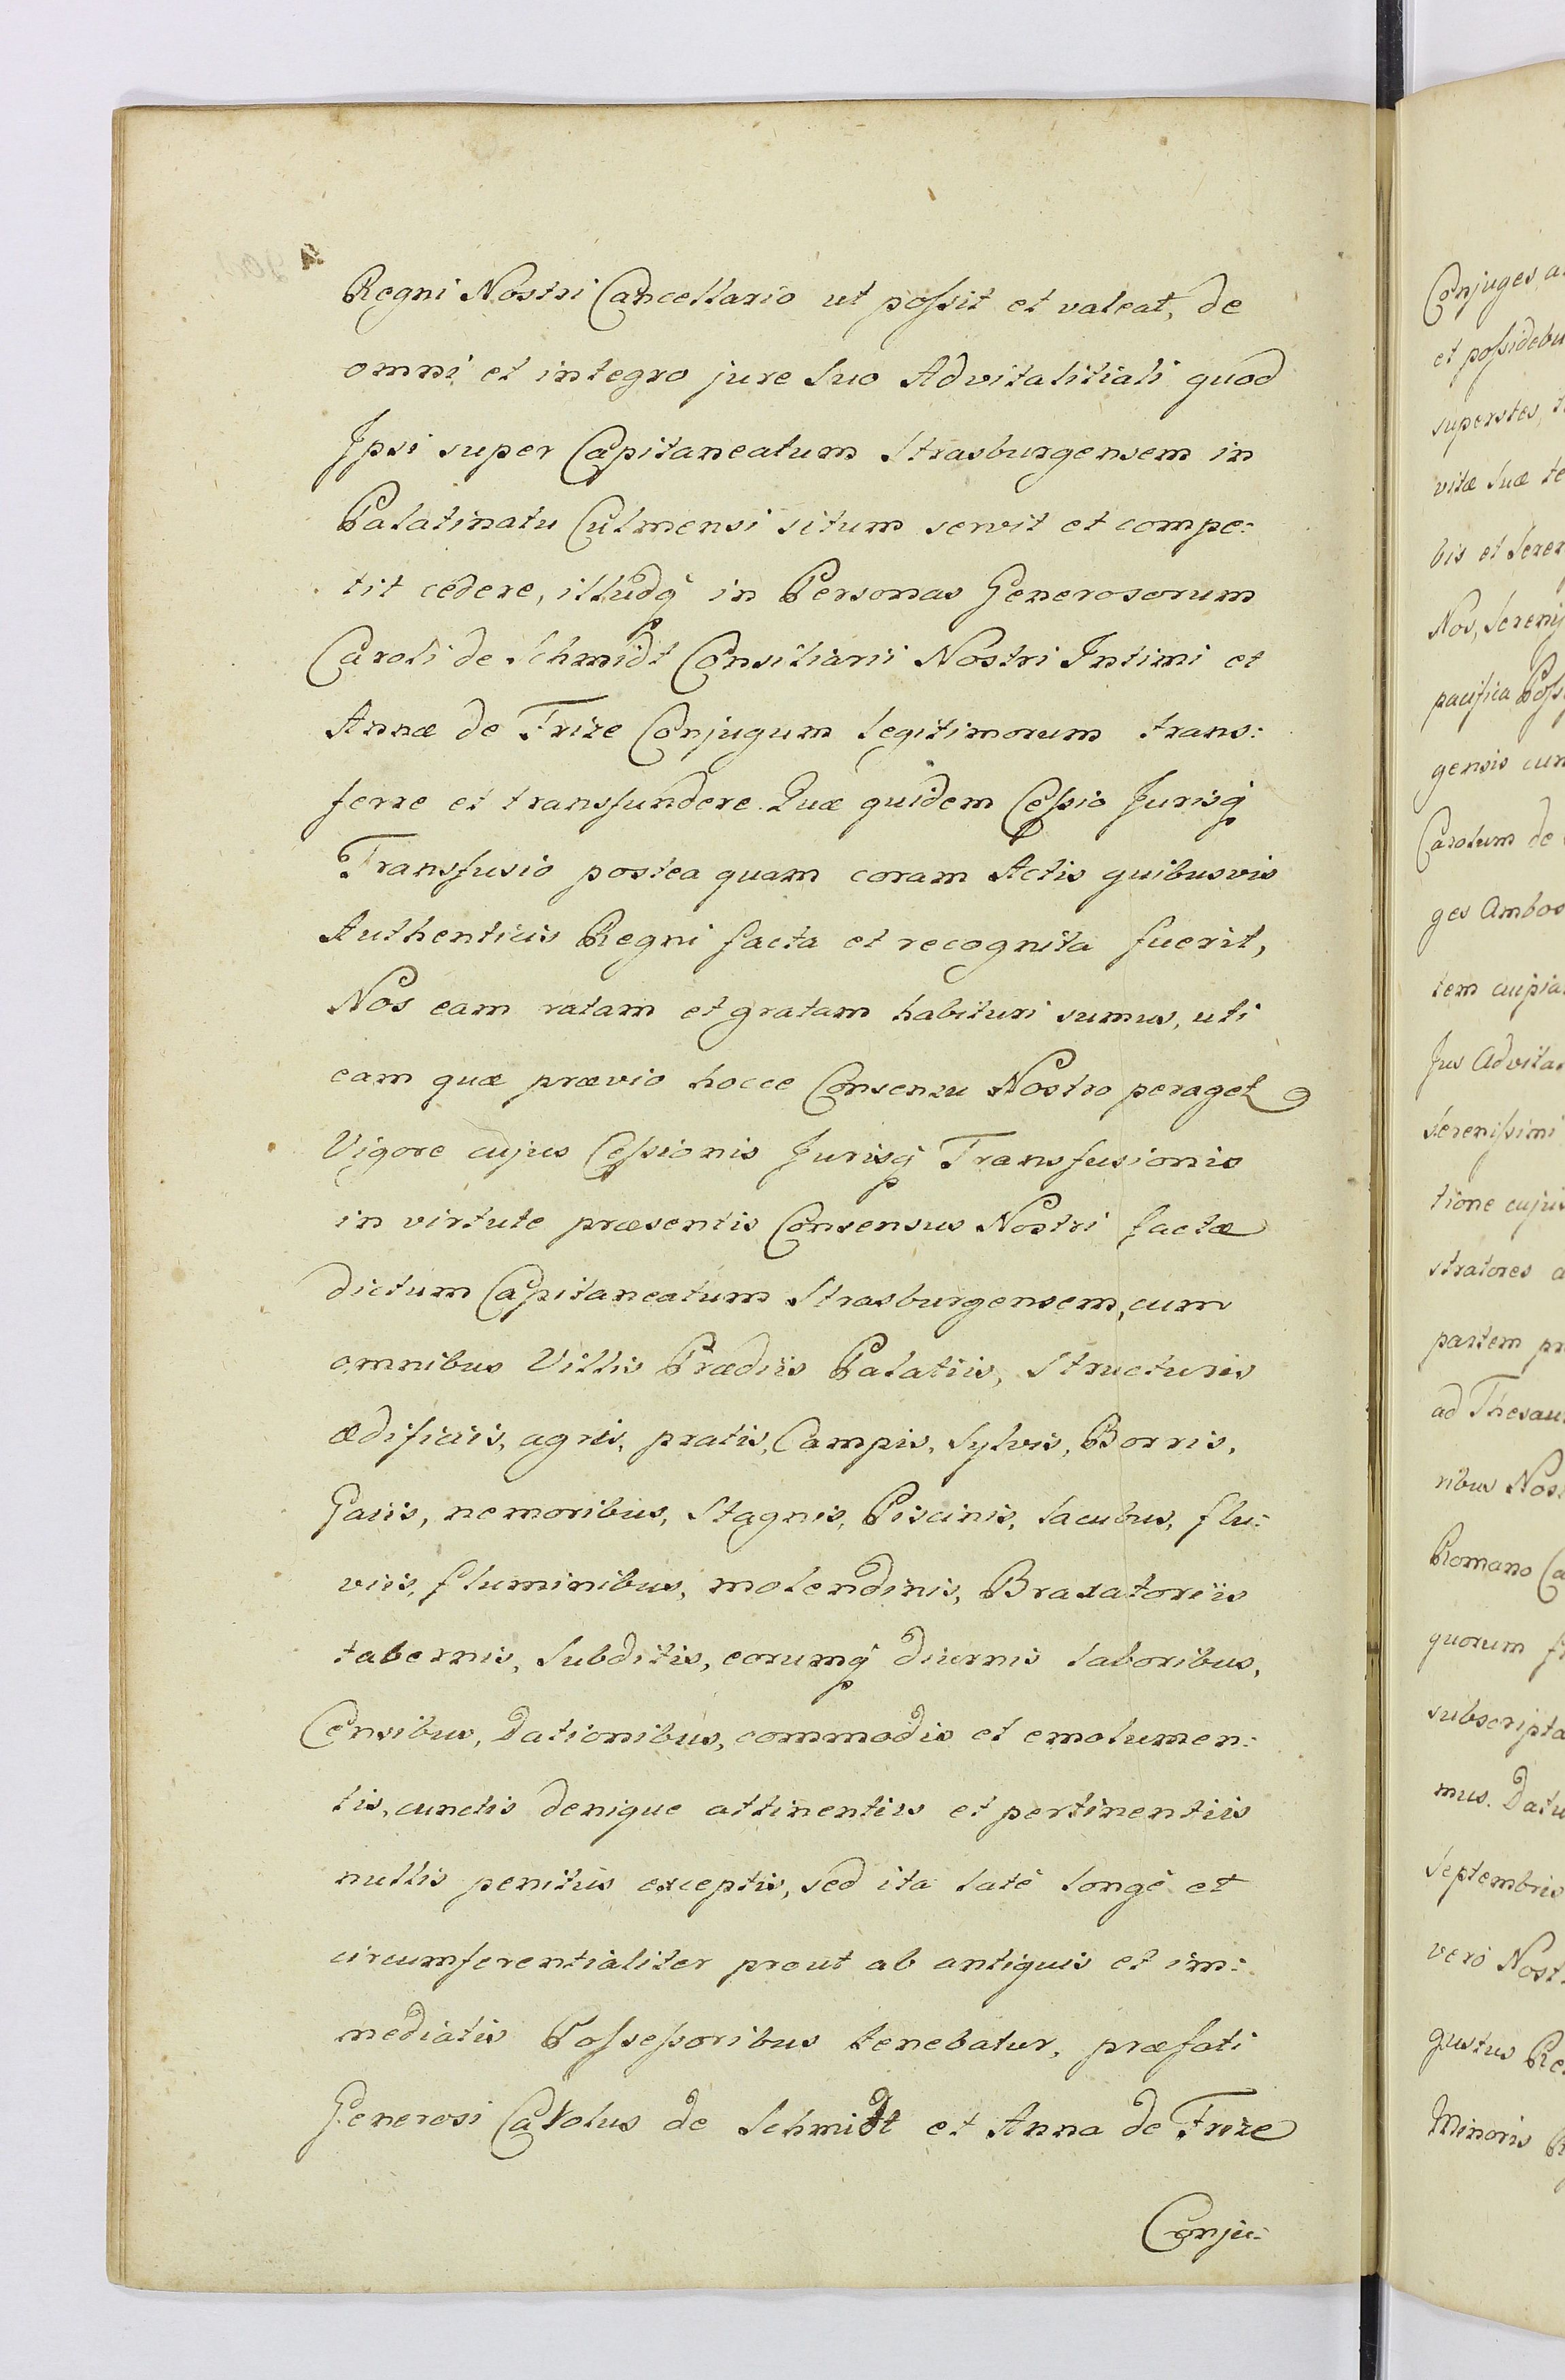 Regni Nostri Cancellario ut possit et valeat, de
omni et integro jure suo Advitalitiali quod
Ipsi super Capitaneatum Strasburgensem in
Palatinatu Culmensi situm servit et compe:
tit cedere, illudq in Personas Generosorum
Caroli de Schmidt Consiliarii Nostri Intimi et
Annæ de Frize Conjugum legitimorum trans:
ferre et transfundere. Quæ quidem Cessio Jurisq
Transfusio postea quam coram Actis quibusvis
Authenticis Regni facta et recognita fuerit,
Nos eam ratam et gratam habituri sumus, uti
eam quæ prævio hocce Consensu Nostro peraget
Vigore cujus Cessionis Jurisq Transfusionis
in virtute præsentis Consensus Nostri factæ
dictum Capitaneatum Strasburgensem, cum
omnibus Villis Prædiis Palatiis, Structuris
ædificiis, agris, pratis, Campis, Sylvis, Borris,
Gaiis, nemoribus, Stagnis, Piscinis, lacubus, flu:
viis, fluminibus, molendinis, Braxatoriis
tabernis, Subditis, eorumq diurnis laboribus,
Censibus, Dationibus, commodis et emolumen:
tis, cunctis denique attinentiis et pertinentiis
nullis penitus exceptis, sed ita latè longè et
circumferentialiter prout ab antiquis et im:
mediatis Possessoribus tenebatur, præfati
Generosi Carolus de Schmidt et Anna de Frize
Conju:
Conjuges, a
et possidebu
superstes, t
vitæ suæ te
bis et Seren
Nos, Sereniss
pacifica Poss
gensis cum
Carolum de
ges Ambos
tem cupia
Jus Advita
Serenissimi
tione cujus
stratores a
partem pr
ad Thesau
ribus Nost
Romano Ca
quorum fi
subscripta
mus. Datu
Septembris
vero Nost
gustus Re
Minoris R